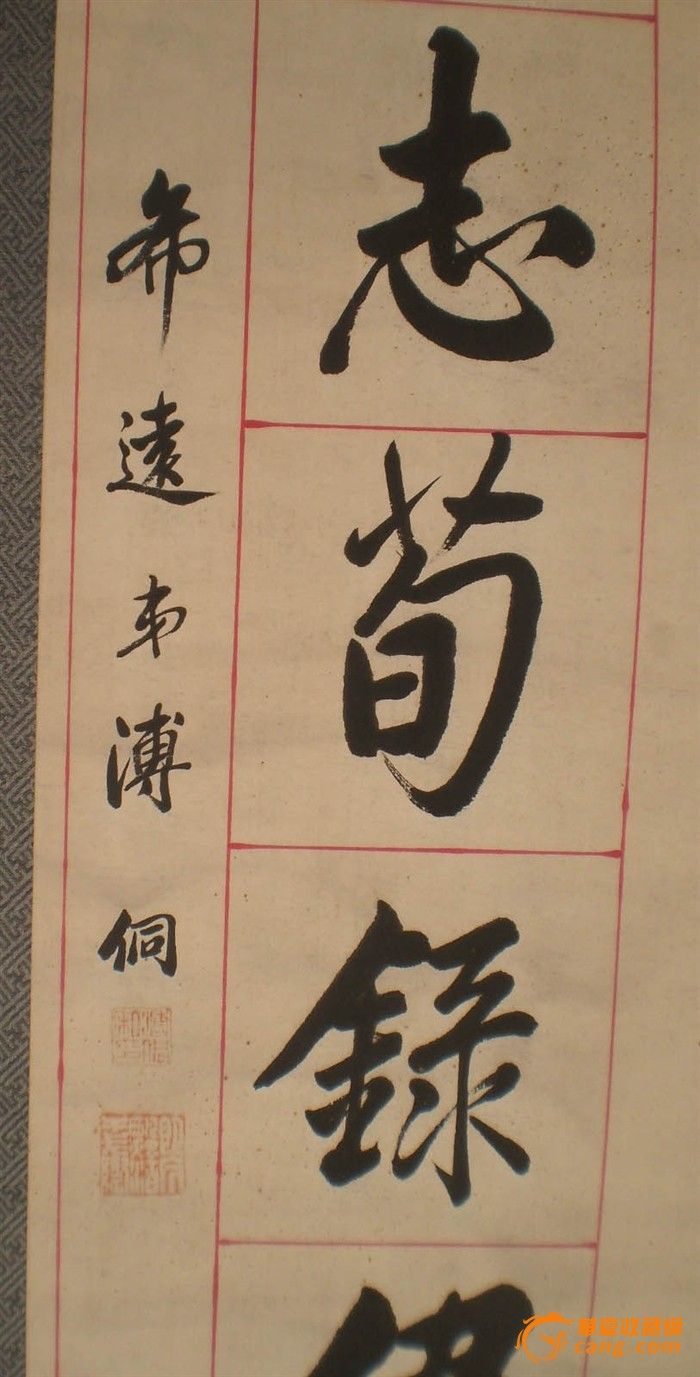 志荀錄
希遠弟溥侗
華夏收藏網
cang.com